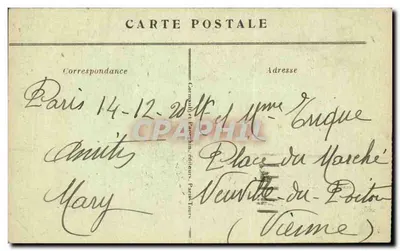 CARTE POSTALE
Correspondance
Adresse
Paris 14-12-20
Amitiés
Mary
M et Mme Trique
Place du Marché
Neuville-du-Poitou
(Vienne)
CARTE-POSTALE